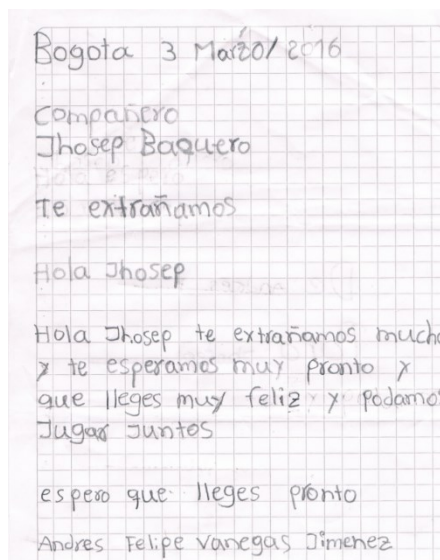 Bogota 3 Marzo/2016
compañero
Jhosep Baquero
Te extrañamos
Hola Jhosep
Hola Jhosep te extrañamos mucho
y te esperamos muy pronto y
que lleges muy feliz y podamos
Jugar Juntos
espero que lleges pronto
Andres Felipe vanegas Jimenez